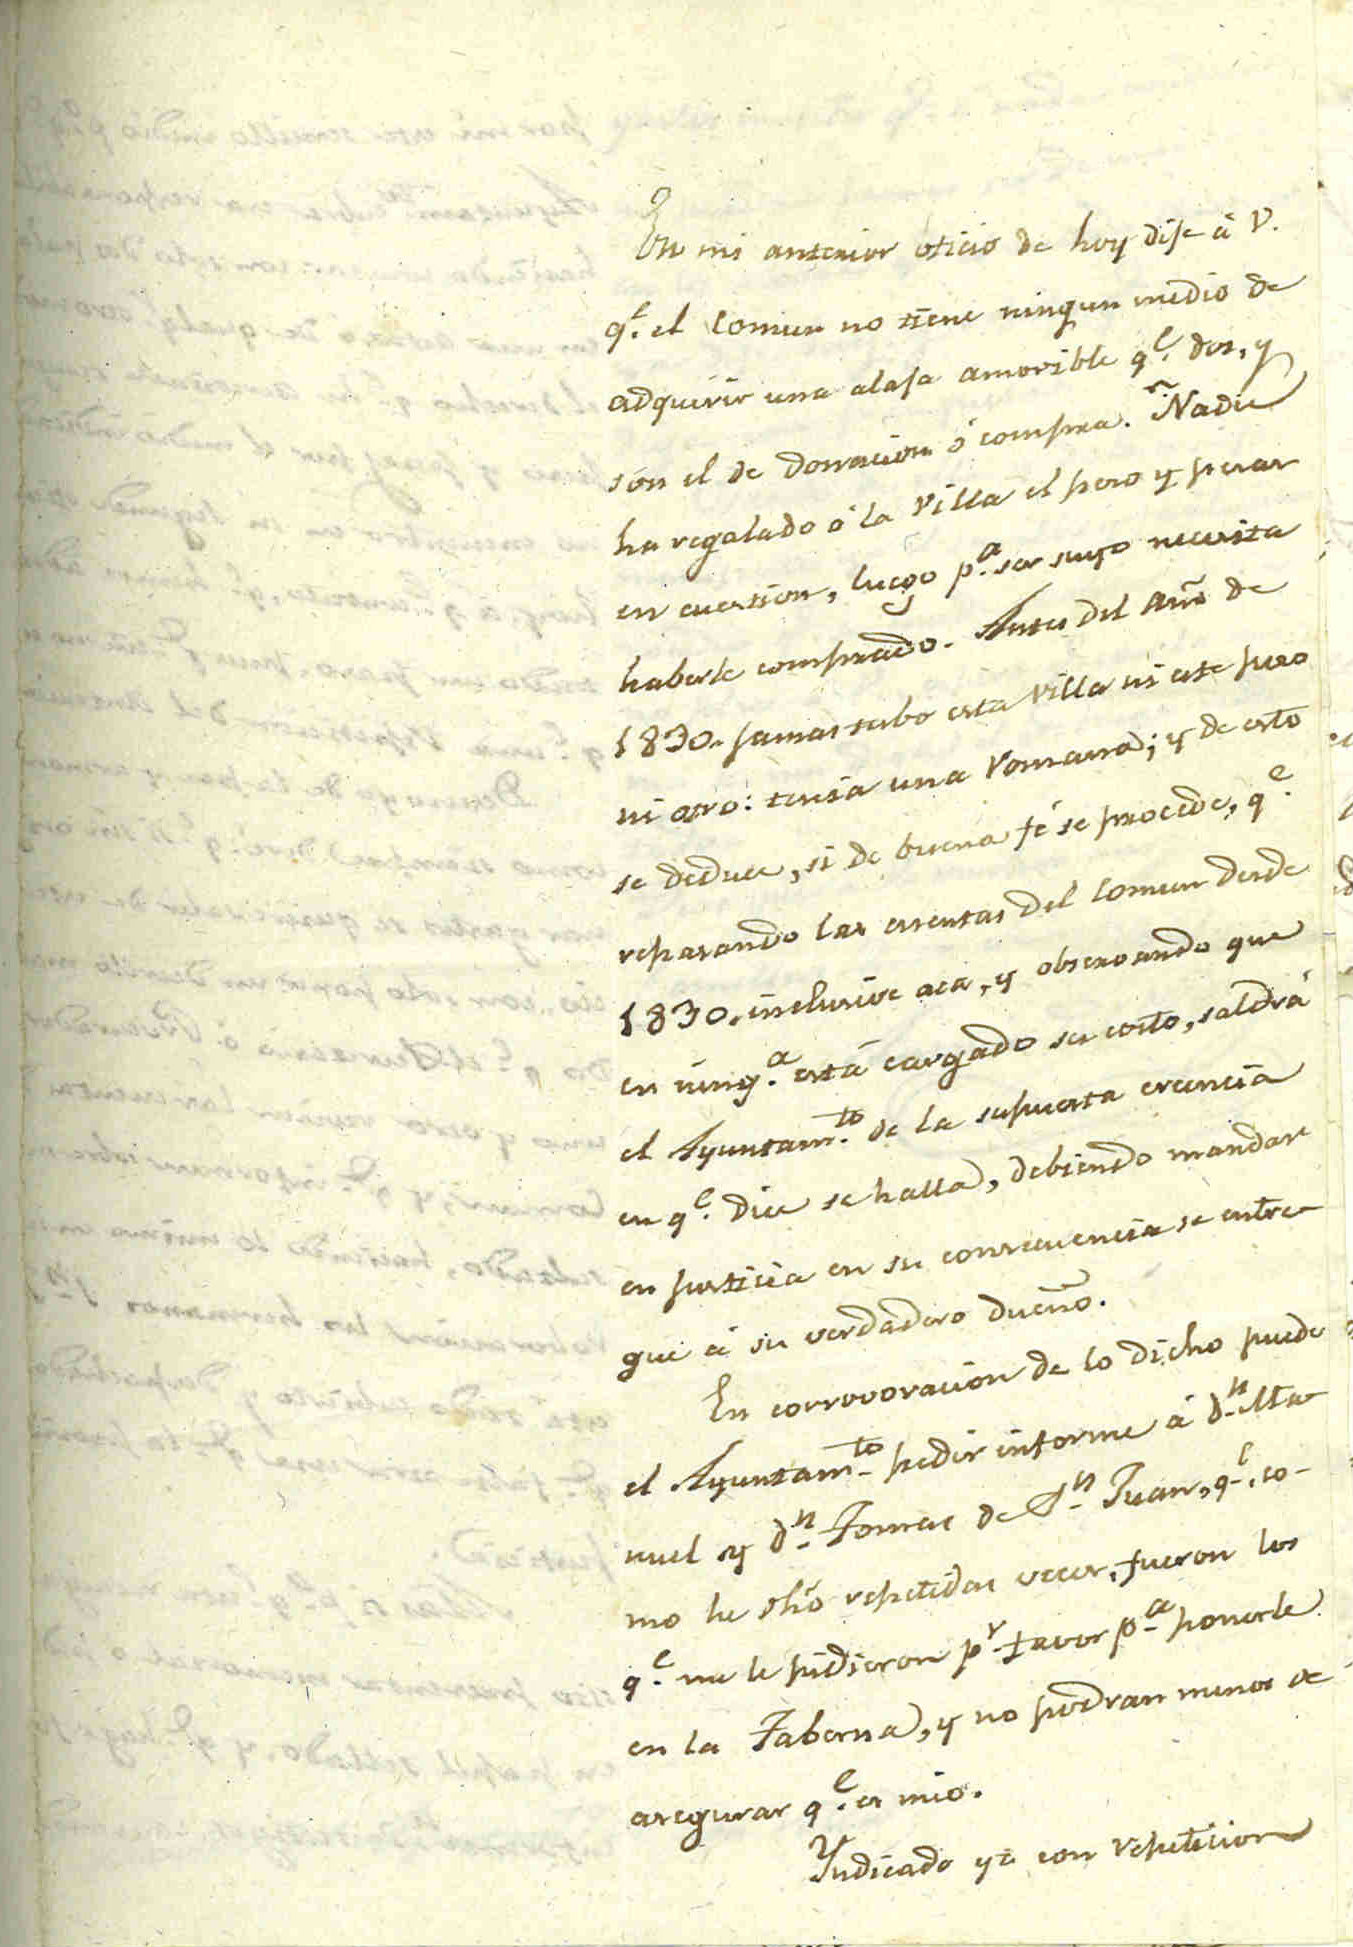 En mi anterior oficio de hoy dije á V.
q.e el comun no tiene ningun medio de
adquirir una alaja amovible q.e dos, y
son el de donacion ó compra. Nadie
ha regalado á la Villa el peso y pesar
en cuestion, luego p.a ser suyo necesita
haberle comprado. Antes del año de
1830. jamas tubo esta villa ni este peso
ni otro: tenia una Romana; y de esto
se deduce, si de buena fé se procede, q.e
repasando las cuentas del comun desde
1830. inclusive acá, y observando que
en ning.a está cargado su costo, saldrá
el Ayuntam.to de la supuesta creencia
en q.e dice se halla, debiendo mandar
en justicia en su consecuencia se entre
gue á su verdadero dueño.
En corrovoracion de lo dicho puede
el Ayuntam.to pedir informe á d.n Ma
nuel y d.n Tomas de S.n Juan, q.e, co-
mo he dho repetidas veces, fueron los
q.e me le pidieron p.r favor p.a ponerle
en la Taberna, y no podran menos de
asegurar q.e es mio.
Yndicado ya con repeticion